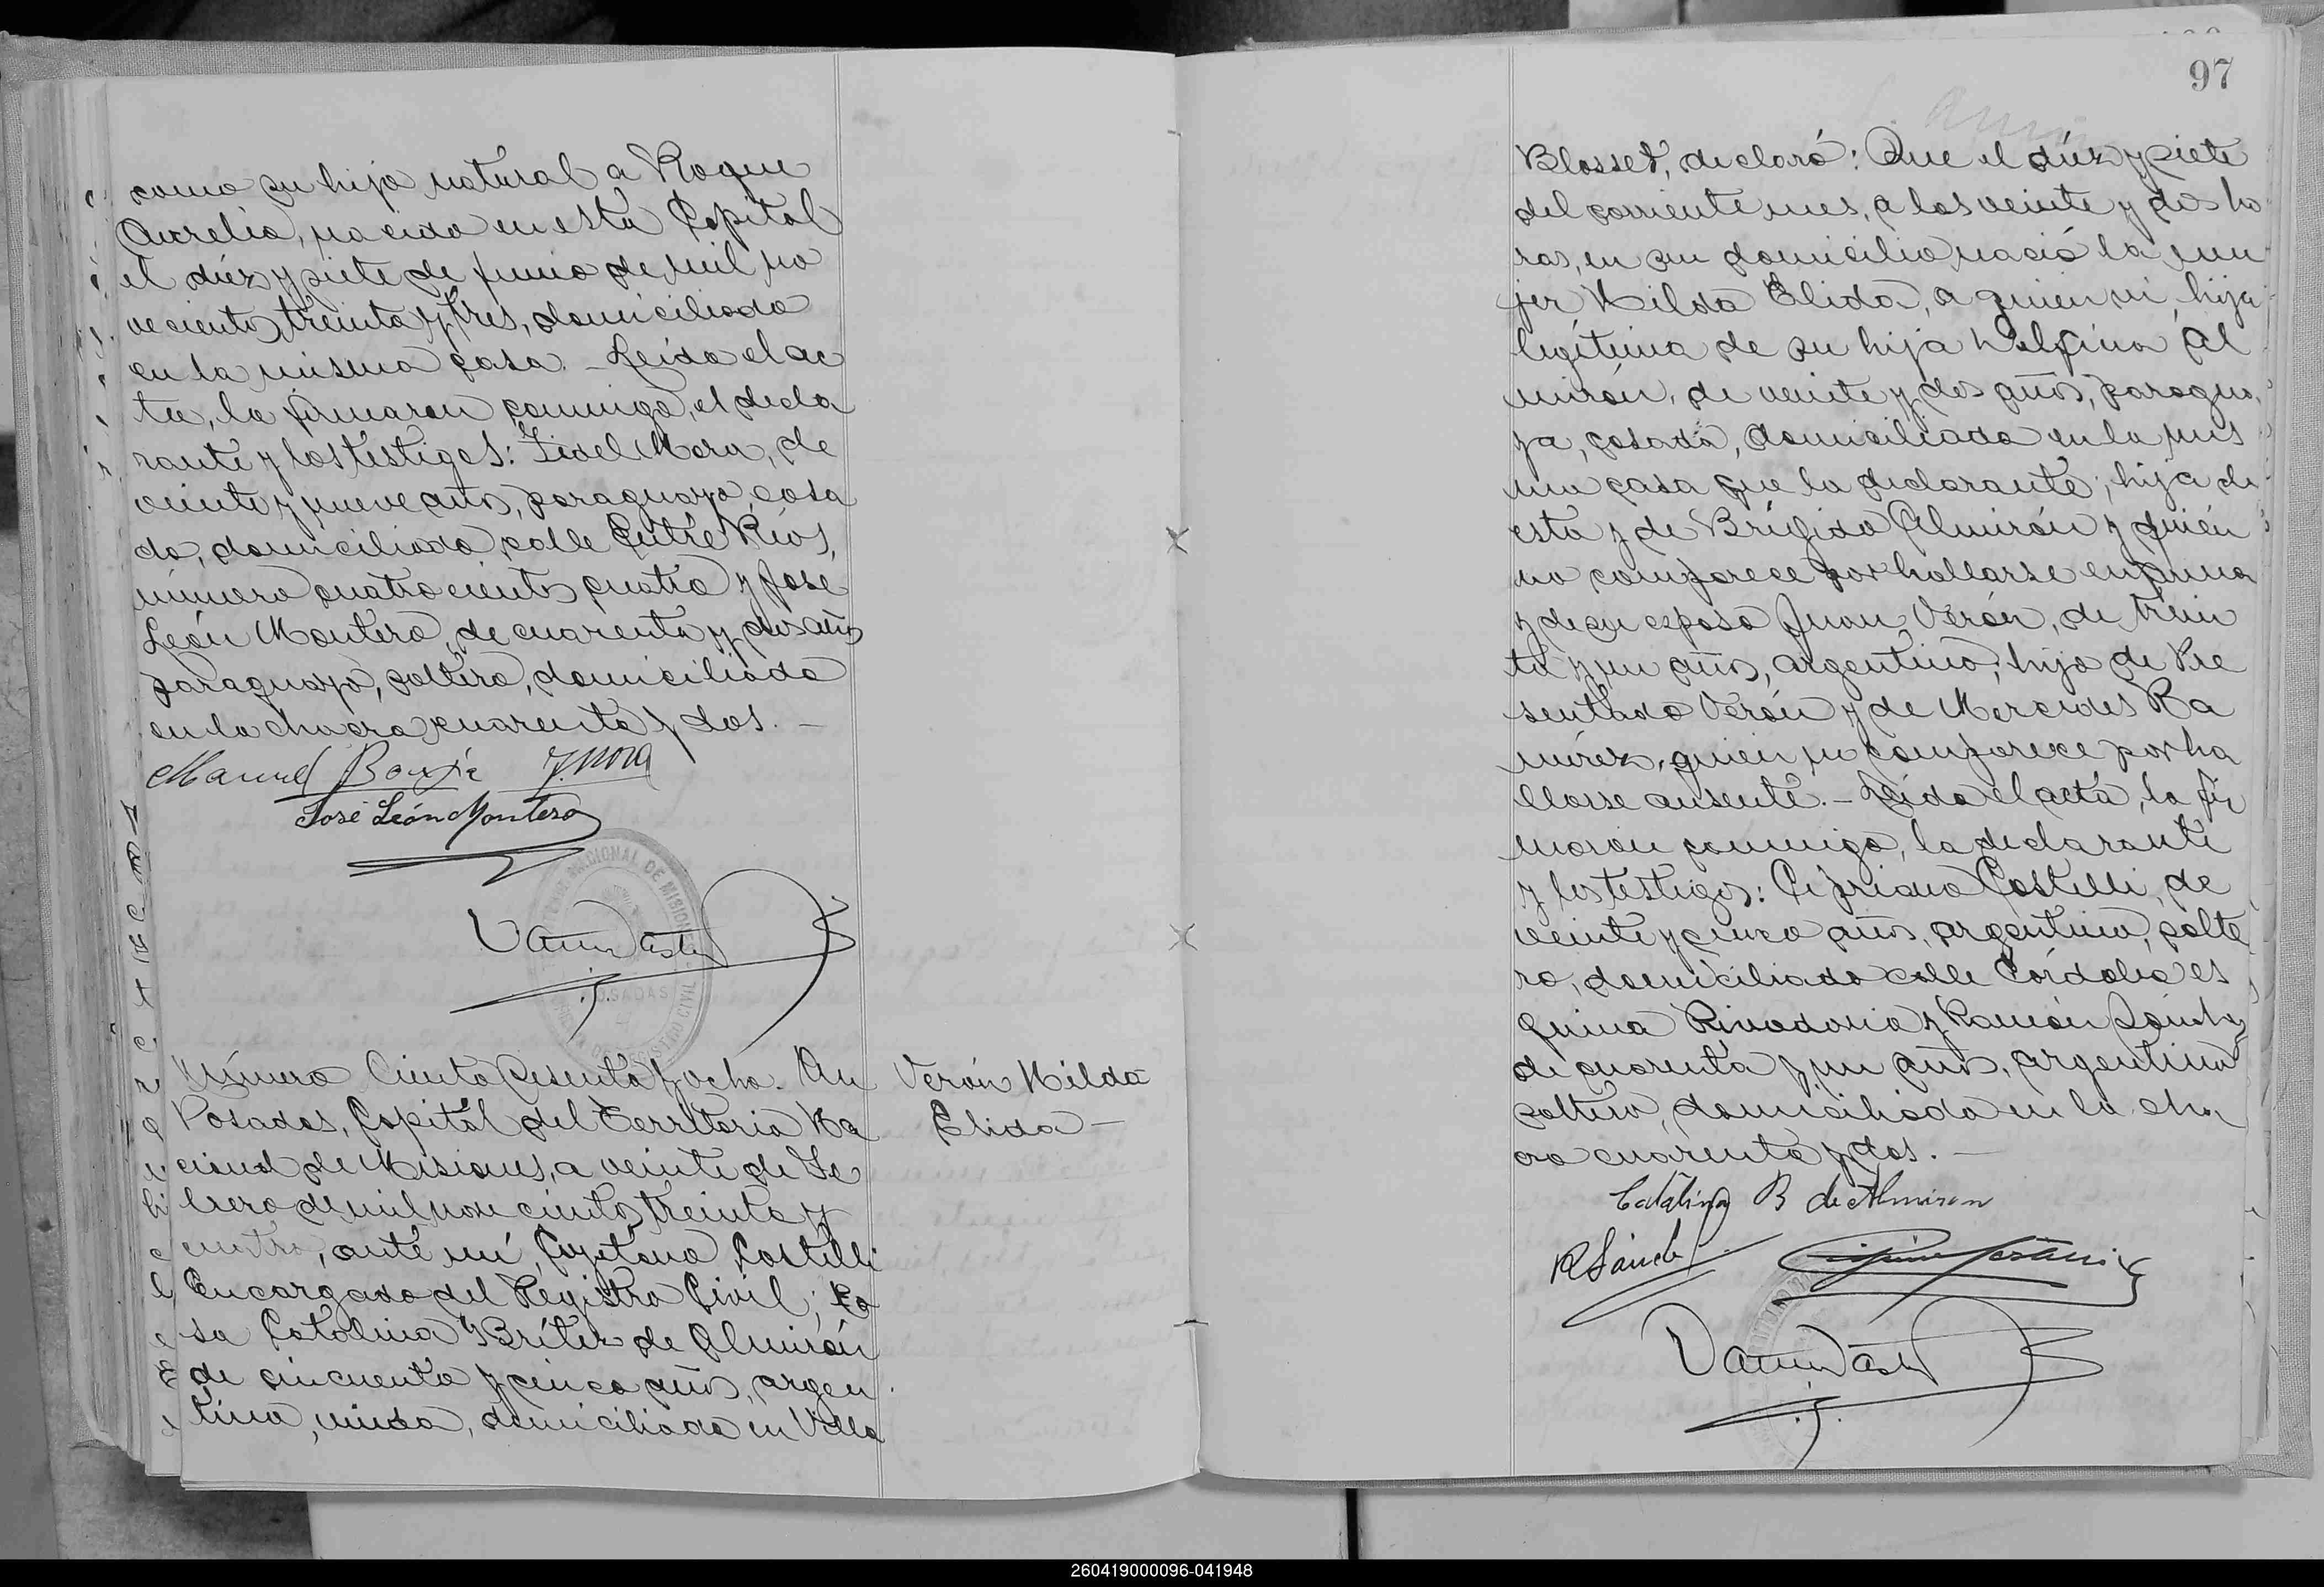 como su hijo natural a Roque
Aurelio, nacido en esta Capital
el diez y siete de junio de mil no
vecientos treinta y tres, domiciliado
en la misma casa. - Leida el ac
ta, la firmaron conmigo, el decla
rante y los testigos: Fidel Mora, de
veinte y nueve años, paraguayo, casa
do, domiciliado calle Entre Ríos,
número cuatrocientos cuatro y José
León Montero, de cuarenta y dos años
paraguayo, soltero, domiciliado
en la chacra cuarenta y dos. -
Manuel F. Mora
José León Montero
NACIONAL DE MISIONES
POSADAS
REGISTRO CIVIL
Número Ciento sesenta y ocho. En
Posadas, Capital del Territorio Na
cional de Misiones, a veinte de Fe
brero de mil novecientos treinta y
cuatro, ante mí, Cayetano Castelli
Encargado del Registro Civil; Ro
sa Catalina Brítez de Almirón
de cincuenta y cinco años, argen
tina, viuda, domiciliada en Villa
Verón Nilda
Elida -
97
Blosset, declaró: Que el diez y siete
del corriente mes, a las veinte y dos ho
ras, en su domicilio nació la mu
jer Nilda Elida, a quien vi, hija
legítima de su hija Delfina Al
mirón, de veinte y dos años, paragua
ya, casada, domiciliada en la mis
ma casa que la declarante; hija de
esta y de Brígido Almirón y quién
no comparece por hallarse enferma
y de su esposo Juan Verón, de trein
ta y un años, argentino, hijo de Pre
sentado Verón y de Mercedes Ra
mírez, quien no comparece por ha
llarse ausente. - Leida el acta, la fir
maron conmigo, la declarante
y los testigos: Cipriano Castelli, de
veinte y cinco años, argentino, solte
ro, domiciliado calle Córdoba es
quina Rivadavia y Ramón Sánchez
de cuarenta y un años, argentino
soltero, domiciliado en la cha
cra cuarenta y dos. -
Catalina B de Almiron
R Sánchez
260419000096-041948